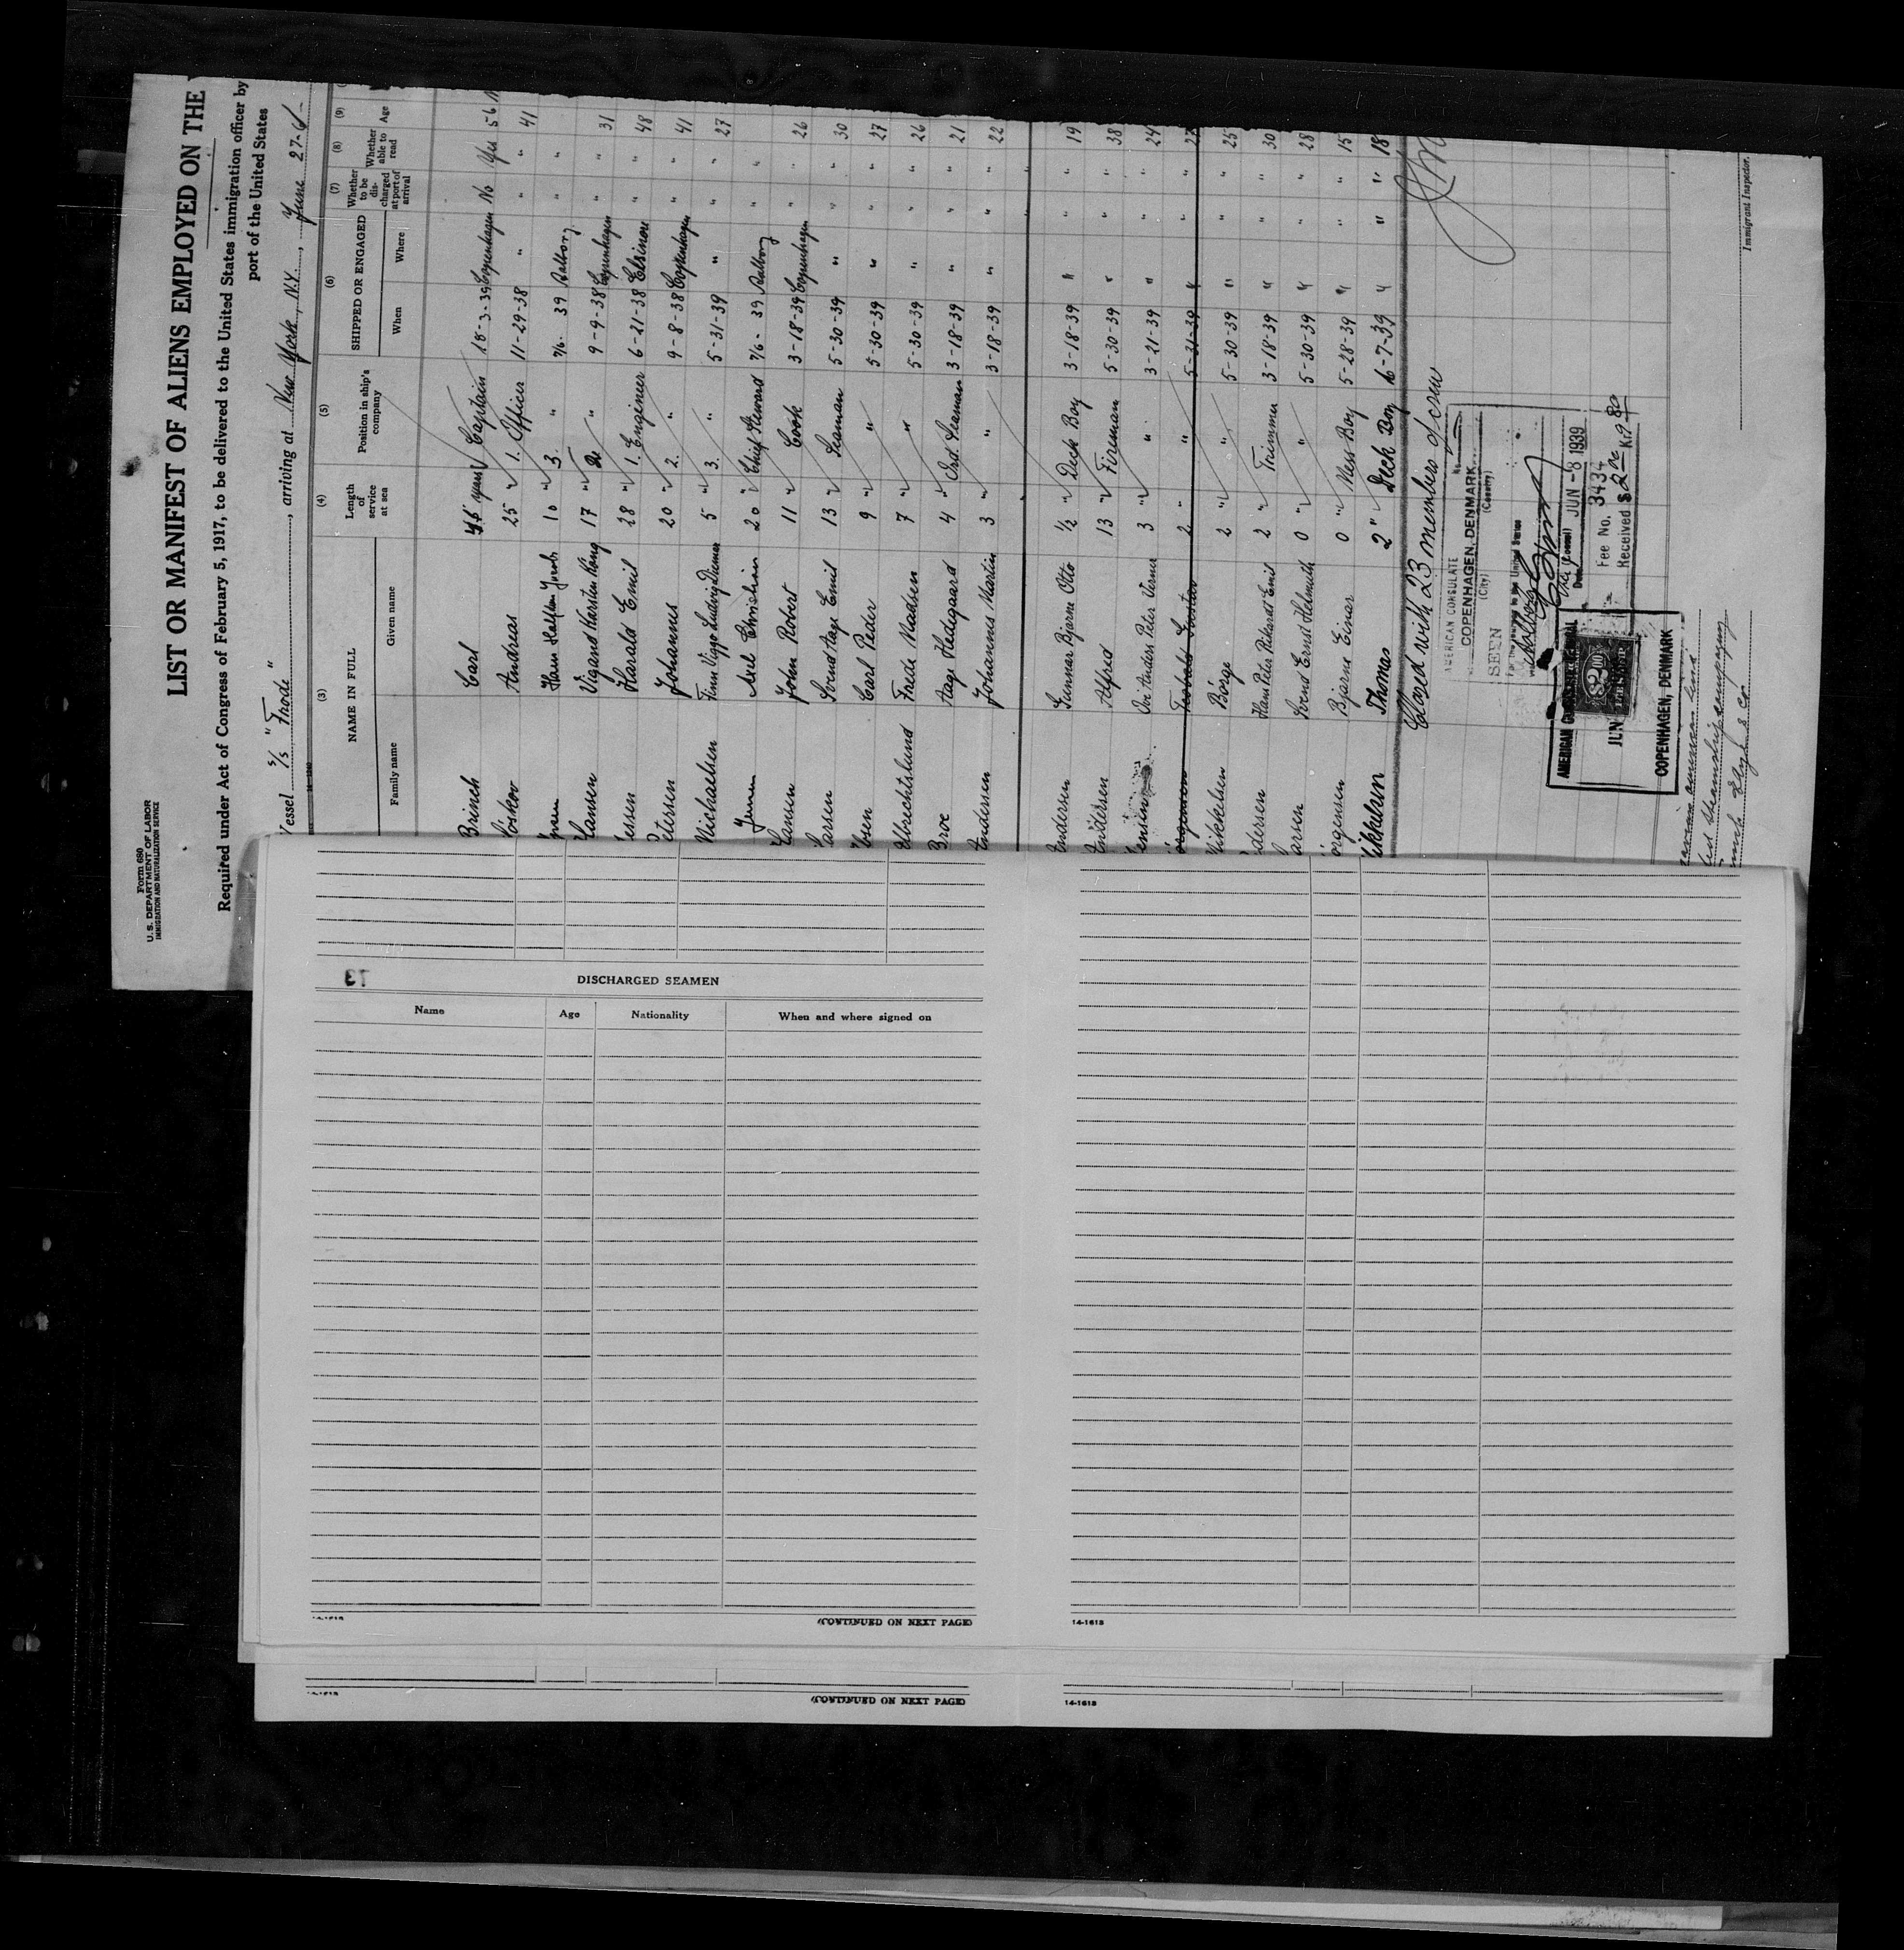 Form 680
U. S. DEPARTMENT OF LABOR
IMMIGRATION AND NATURALIZATION SERVICE
LIST OR MANIFEST OF ALIENS EMPLOYED ON THE
Required under Act of Congress of February 5, 1917, to be delivered to the United States immigration officer by
port of the United States
essel S/S "Frode", arriving at New York, N.Y., June 27-
(3) (4) (5) (6) (7) (8) (9)
NAME IN FULL Length of service at sea Position in ship's company SHIPPED OR ENGAGED Whether to be discharged at port of arrival Whether able to read Age
Family name Given name When Where
Brinch Carl years Captain 18-3-39 Copenhagen No Yes 56
Andreas 25 " 1. Officer 11-29-38 " " " 41
10 " 3. " 7/6-39 Aalborg " "
Hansen Vigand Karsten 17 " " 9-9-38 Copenhagen " " 31
essen Harald Emil 28 " 1. Engineer 6-21-38 Elsinore " " 48
Petersen Johannes 20 " 2. " 9-8-38 Copenhagen " " 41
Michaelsen Finn Viggo Ludvig 5 " 3. " 5-31-39 " " " 27
Axel Christian 20 " Chief Steward 7/6-39 Aalborg " "
Hansen John Robert 11 " Cook 3-18-39 Copenhagen " " 26
Larsen Svend Aage Emil 13 " Seaman 5-30-39 " " " 30
bsen Carl Peder 9 " " 5-30-39 " " " 27
Albrechtslund Frede Madsen 7 " " 5-30-39 " " " 26
Broe Aage Hedegaard 4 " Ord. Seaman 3-18-39 " " " 21
Andersen Johannes Martin 3 " " 3-18-39 " " " 22
Andersen Gunnar Bjarne Otto 1/2 " Deck Boy 3-18-39 " " " 19
Andersen Alfred 13 " Fireman 5-30-39 " " " 38
ensen Anders Peter Verner 3 " " 3-21-39 " " " 24
orgensen 2 " " 5-31-39 " " " 27
Mikkelsen Börge 2 " " 5-30-39 " " " 25
adersen Hans Peter Rikardt Emil 2 " Trimmer 3-18-39 " " " 30
arsen Svend Ernst Helmuth 0 " " 5-30-39 " " " 28
orgensen Bjarne Einar 0 " Mess Boy 5-28-39 " " " 15
ikkelsen Thomas 2 " Deck Boy 6-7-39 " " " 18
Closed with 23 members of crew
AMERICAN CONSULATE
COPENHAGEN, DENMARK
(City) (Country)
SEEN
Aalborg
Date JUN - 8 1939
Fee No. 3434
Received $2.00 Kr 9.80
AMERICAN CONSULATE GENERAL
$2.00
JUN
COPENHAGEN, DENMARK
Immigrant Inspector.
DISCHARGED SEAMEN
Name Age Nationality When and where signed on
(CONTINUED ON NEXT PAGE)
14-1613
(CONTINUED ON NEXT PAGE)
14-1613